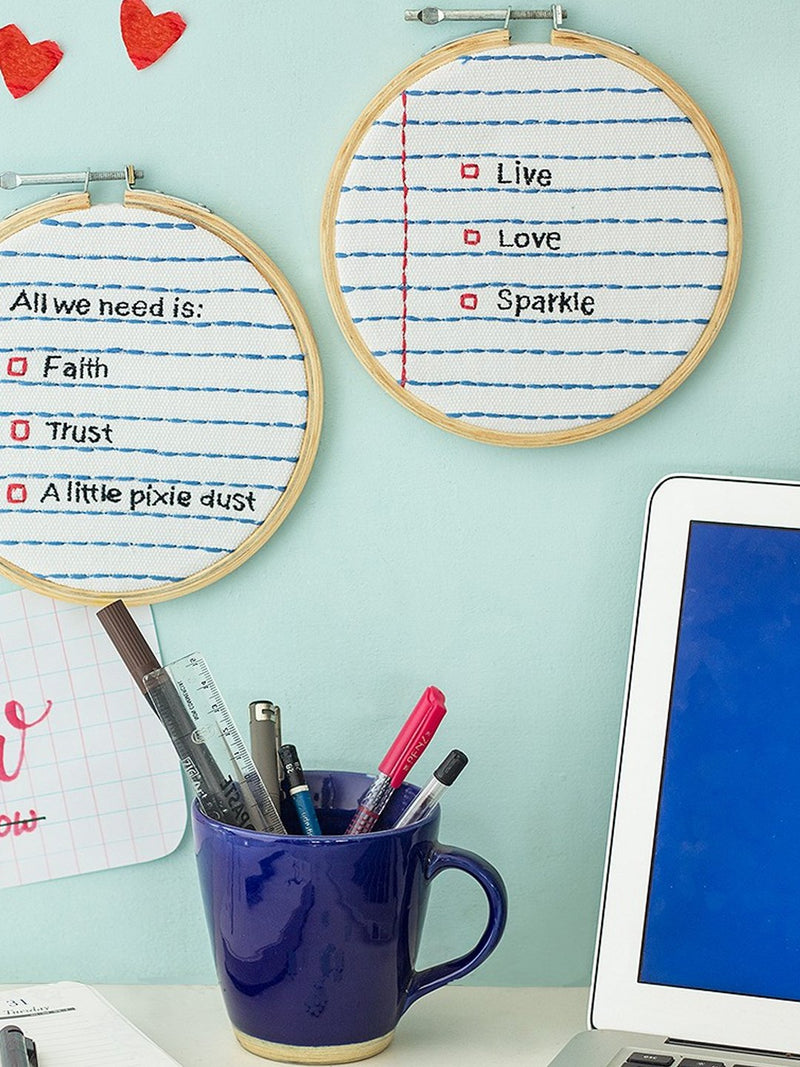 All we need is:
Faith
Trust
A little pixie dust
Live
Love
Sparkle
31
Tuesday